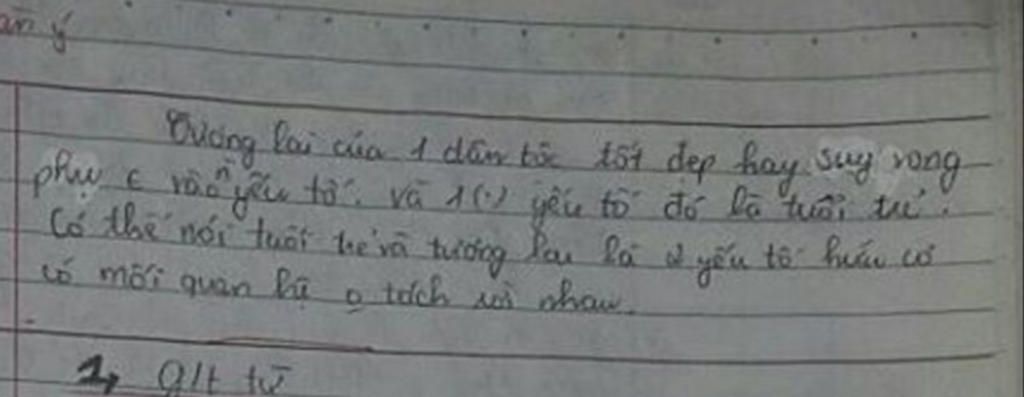 àn ý
Tương lai của 1 dân tộc tốt đẹp hay suy vong
phụ c vào n yếu tố. Và 1 (.) yếu tố đó là tuổi trẻ.
Có thể nói tuổi trẻ và tương lai là 2 yếu tố hữu cơ
có mối quan hệ o tách rời nhau.
1, glt từ